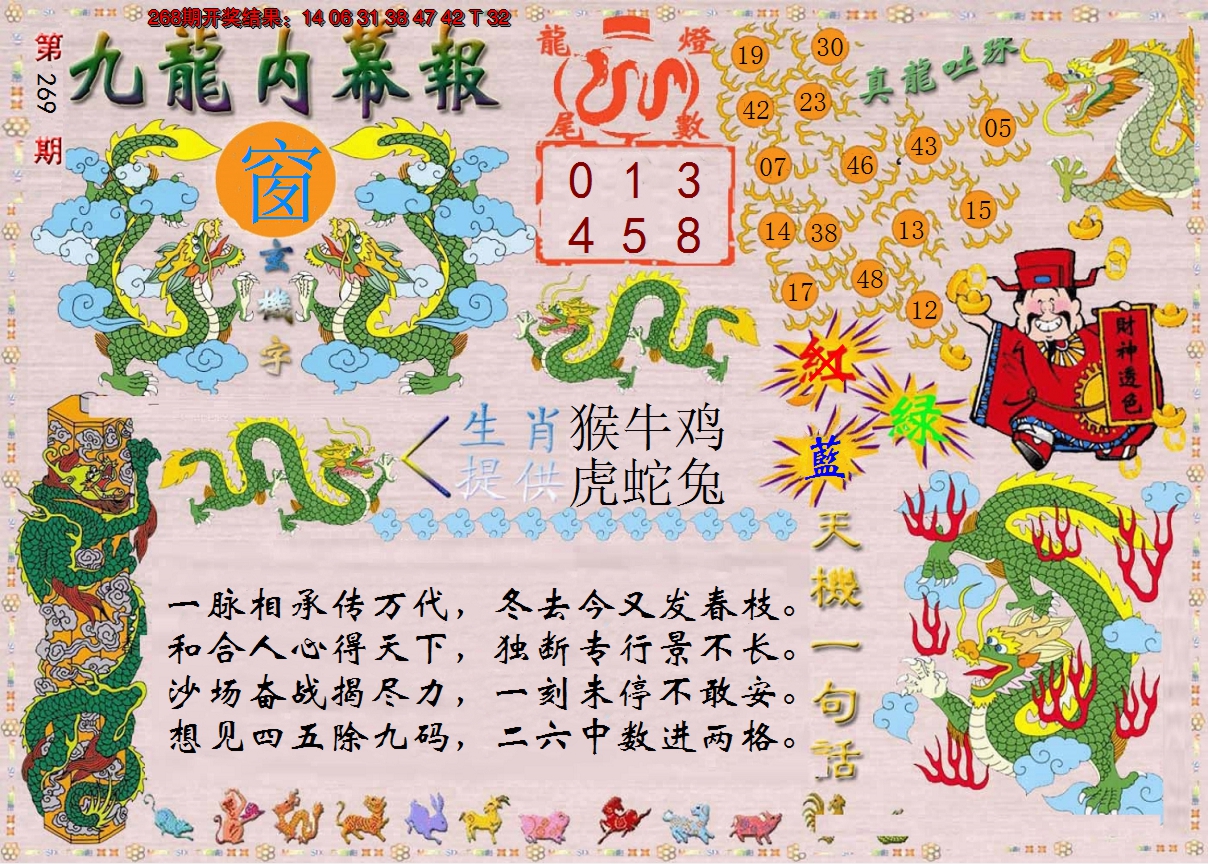 268期开奖结果：14 06 31 38 47 42 T 32
第269期
九龍内幕報
窗
玄機字
龍燈
尾數
0 1 3
4 5 8
真龍吐珠
19 30
42 23
43 05
07 46
15
14 38 13
17 48 12
財神透色
紅
綠
藍
生肖 猴牛鸡
提供 虎蛇兔
天機一句话
一脉相承传万代，冬去今又发春枝。
和合人心得天下，独断专行景不长。
沙场奋战揭尽力，一刻未停不敢安。
想见四五除九码，二六中数进两格。